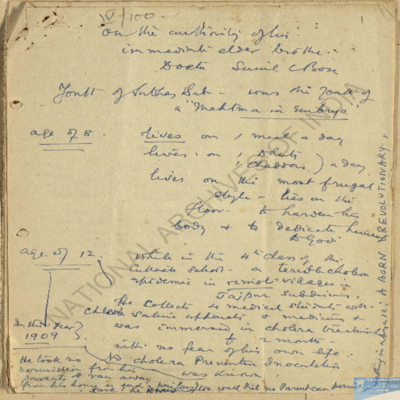 IV/100
On the authority of his
immediate elder brother
Doctor Sunil C Bose
Youth of Subhas Babu - was the youth of
a "Mahatma in embryo"
age of 8. lives on 1 meal a day
lives on 1 Dhoti
1 Chaddar ) a day
lives on the most frugal
style - lies on the
floor - to harden his
body & to dedicate himself
to God
age of 12 while in the 4th class of the
Cuttack School - a terrible cholera
epidemic in remote villages -
Jajpur subdivision.
He collects 2 medical students with
saline apparatus & medicines &
was immersed in cholera
for 2 months -
with no fear of his own life.
In the year
1909
No Cholera Preventive Inoculation
was known
He took no
permission from his
parents & ran away
from his home
no Parent can
Subhas at age 12. A BORN REVOLUTIONARY.
NATIONAL ARCHIVES OF INDIA